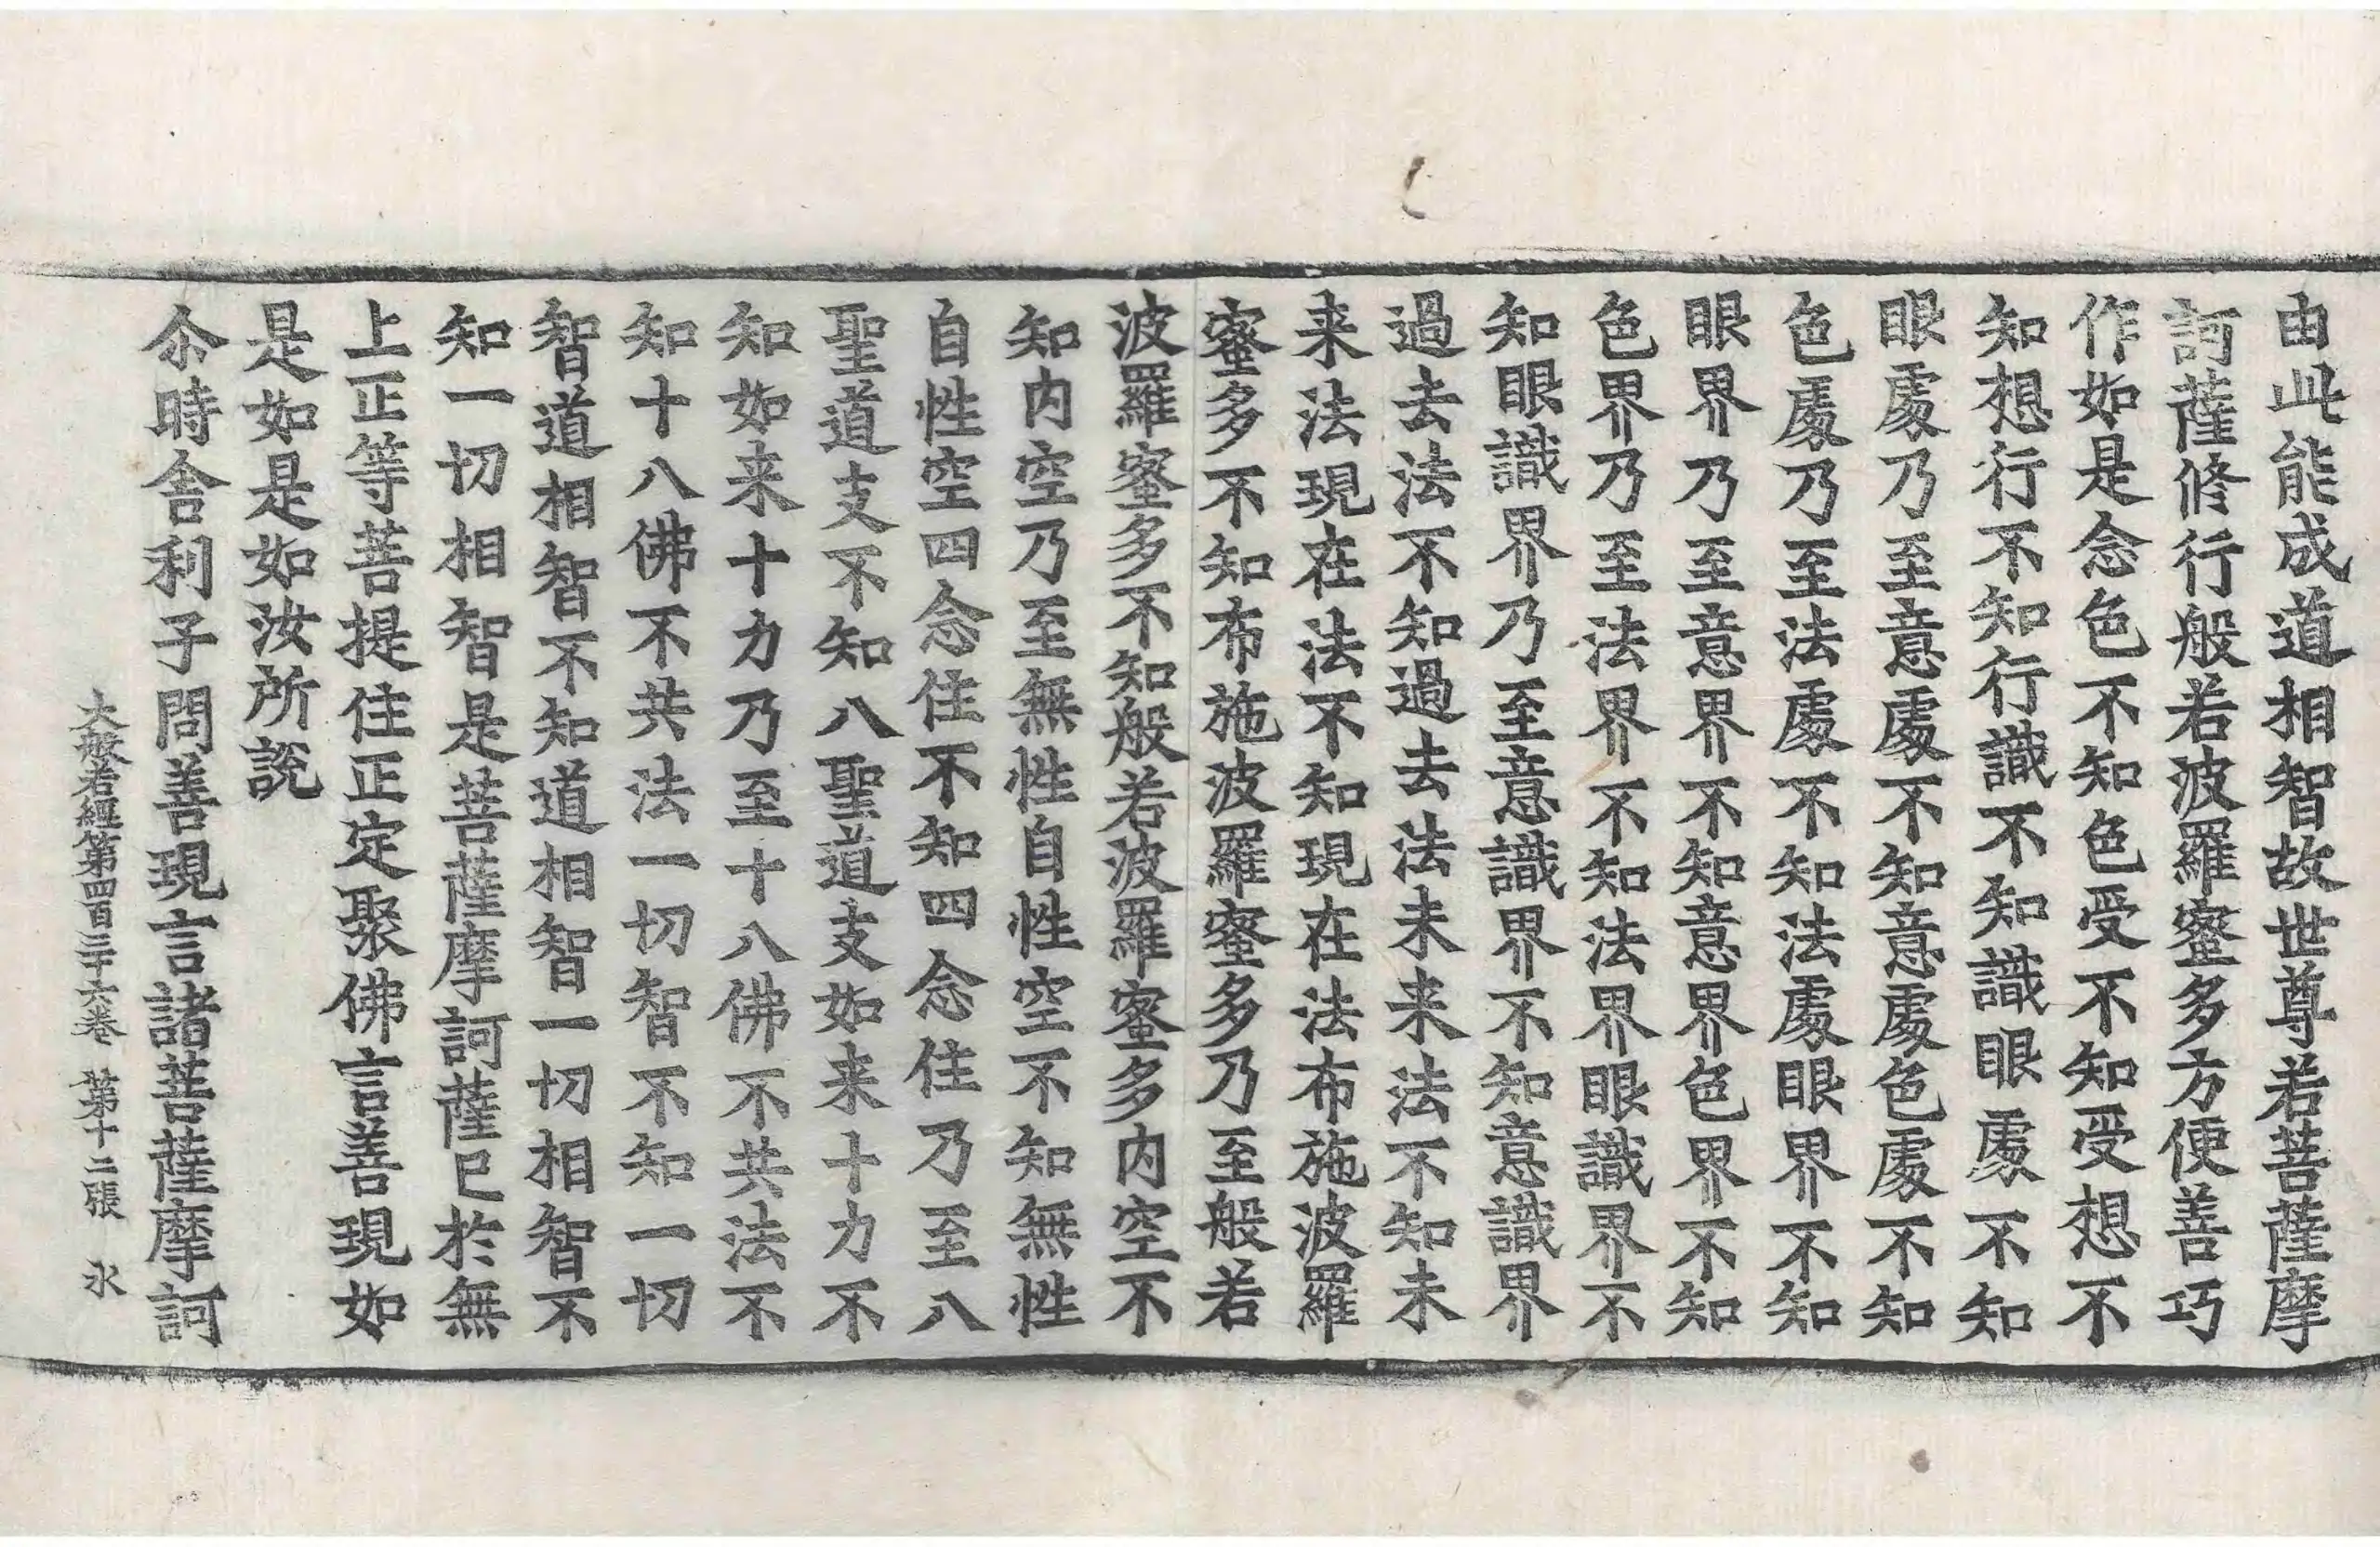 由此能成道相智故世尊若菩薩摩
訶薩修行般若波羅蜜多方便善巧
作如是念色不知色受不知受想不
知想行不知行識不知識眼處不知
眼處乃至意處不知意處色處不知
色處乃至法處不知法處眼界不知
眼界乃至意界不知意界色界不知
色界乃至法界不知法界眼識界不
知眼識界乃至意識界不知意識界
過去法不知過去法未来法不知未
来法現在法不知現在法布施波羅
蜜多不知布施波羅蜜多乃至般若
波羅蜜多不知般若波羅蜜多内空不
知内空乃至無性自性空不知無性
自性空四念住不知四念住乃至八
聖道支不知八聖道支如来十力不
知如来十力乃至十八佛不共法不
知十八佛不共法一切智不知一切
智道相智不知道相智一切相智不
知一切相智是菩薩摩訶薩已於無
上正等菩提住正定聚佛言善現如
是如是如汝所說
尒時舍利子問善現言諸菩薩摩訶
大般若經第四百三十六卷 第十二張 氷